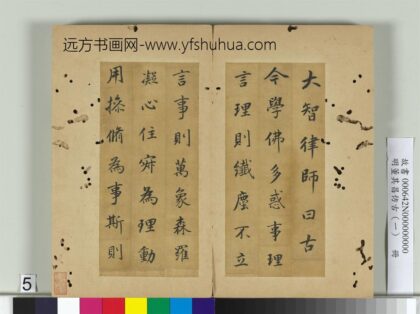 远方书画网-www.yfshuhua.com
大智律師曰古
今學佛多惑事理
言理則纖塵不立
言事則萬象森羅
凝心住寂為理動
用操脩為事斯則
故書000642N000000000
明董其昌仿古（一） 冊
5